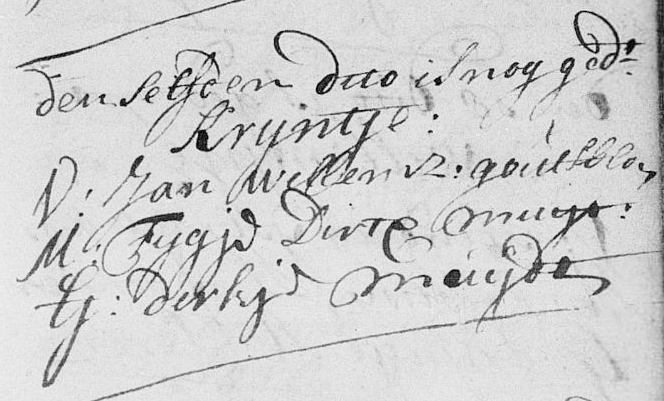 den selfden ditto is nog gedt:
Kryntje:
V: Jan Willemsz: goutblom
M: Fygje Dirx muijs:
G: derkje Muijs